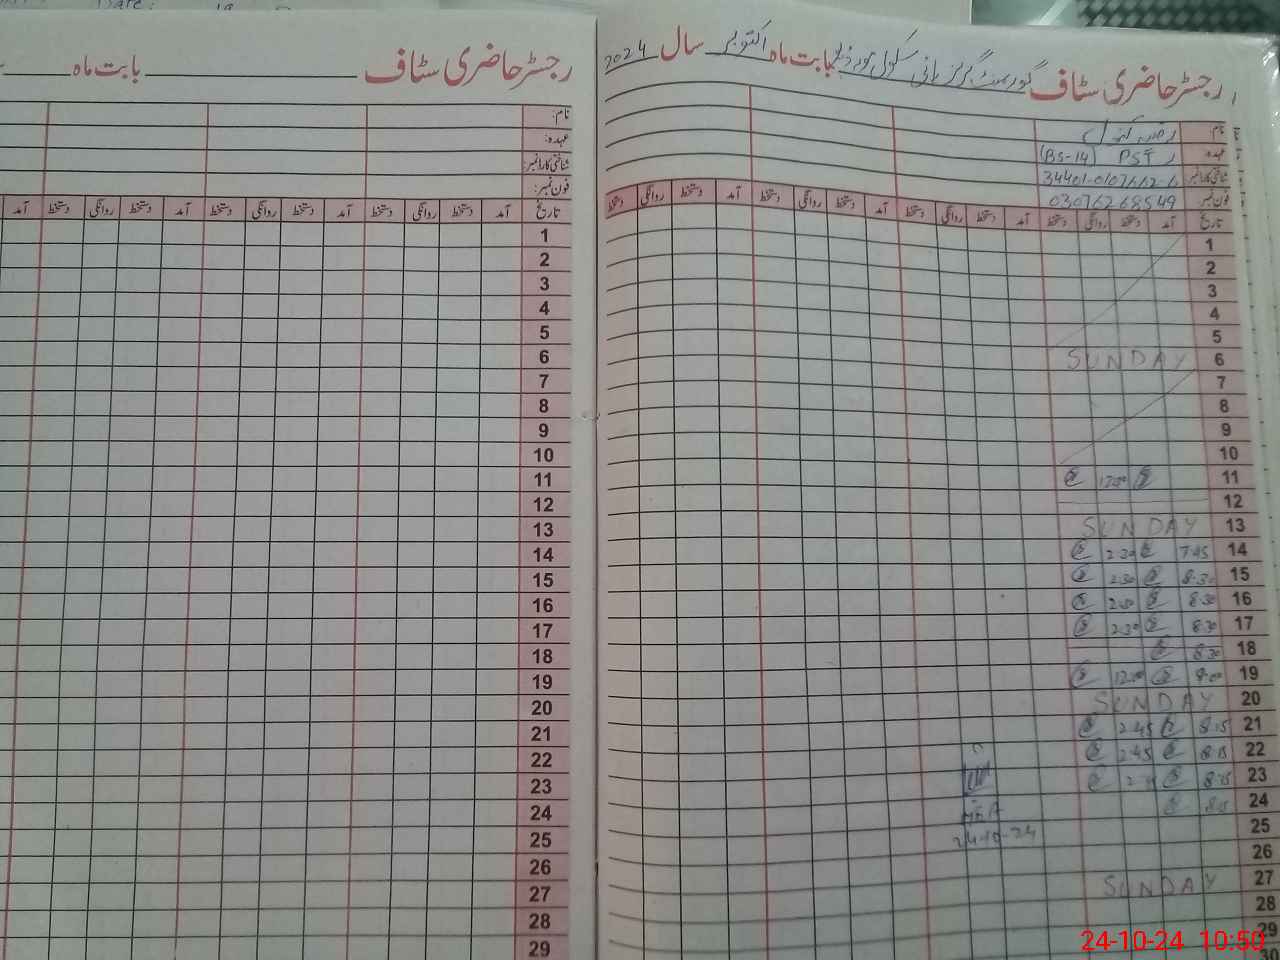 Date:
رجسٹر حاضری سٹاف گورنمنٹ گرلز ہائی سکول بابت ماہ اکتوبر سال 2024
نام:
عہدہ: PST (BS-14)
شناختی کارڈ نمبر: 34401-0107662-6
فون نمبر: 03076268549
تاریخ آمد دستخط روانگی دستخط آمد دستخط روانگی دستخط آمد دستخط روانگی دستخط آمد دستخط روانگی دستخط
1
2
3
4
5
6 SUNDAY
7
8
9
10
11 12:00
12
13 SUNDAY
14 7.45 2.30
15 8.30 2.30
16 8.30 2.30
17 8.30 2.30
18 8.30
19 9.00 12.00
20 SUNDAY
21 8.15 2.45
22 8.15 2.45
23 8.15
24
25
24-10-24
26
27 SUNDAY
28
29
30
رجسٹر حاضری سٹاف بابت ماہ
نام:
عہدہ:
شناختی کارڈ نمبر:
فون نمبر:
تاریخ آمد دستخط روانگی دستخط آمد دستخط روانگی دستخط آمد دستخط روانگی دستخط آمد
1
2
3
4
5
6
7
8
9
10
11
12
13
14
15
16
17
18
19
20
21
22
23
24
25
26
27
28
29
24-10-24 10:50